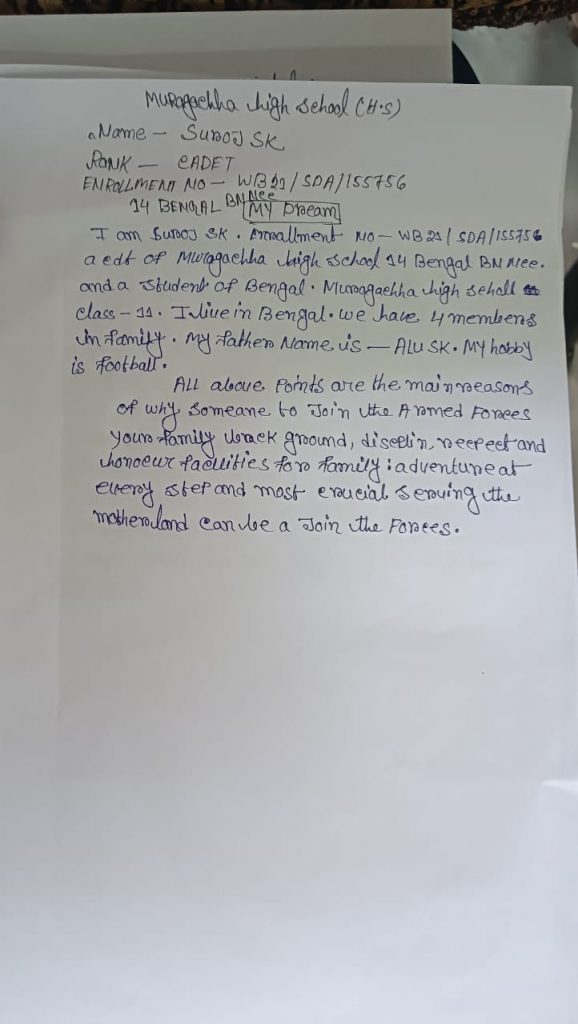 Muragachha high school (H.S)
Name - SUROJ SK
RANK - CADET
ENROLLMENT NO - WB21/SDA/155756
14 BENGAL BN Nee
MY Dream
I am Suroj SK. Enrollment NO - WB21/SDA/155756
a cdt of Muragachha high school 14 Bengal BN Nee.
and a student of Bengal. Muragachha high sehall
class - 11. I live in Bengal. we have 4 members
in family. My father Name is - ALU SK. My hobby
is football.
All above Points are the main reasons
of why someane to Join the Armed Forees
your family back ground, diseplin, reepeet and
honoeur facuities for family : adventure at
every step and most erucial serving the
motherland can be a Join the Forees.